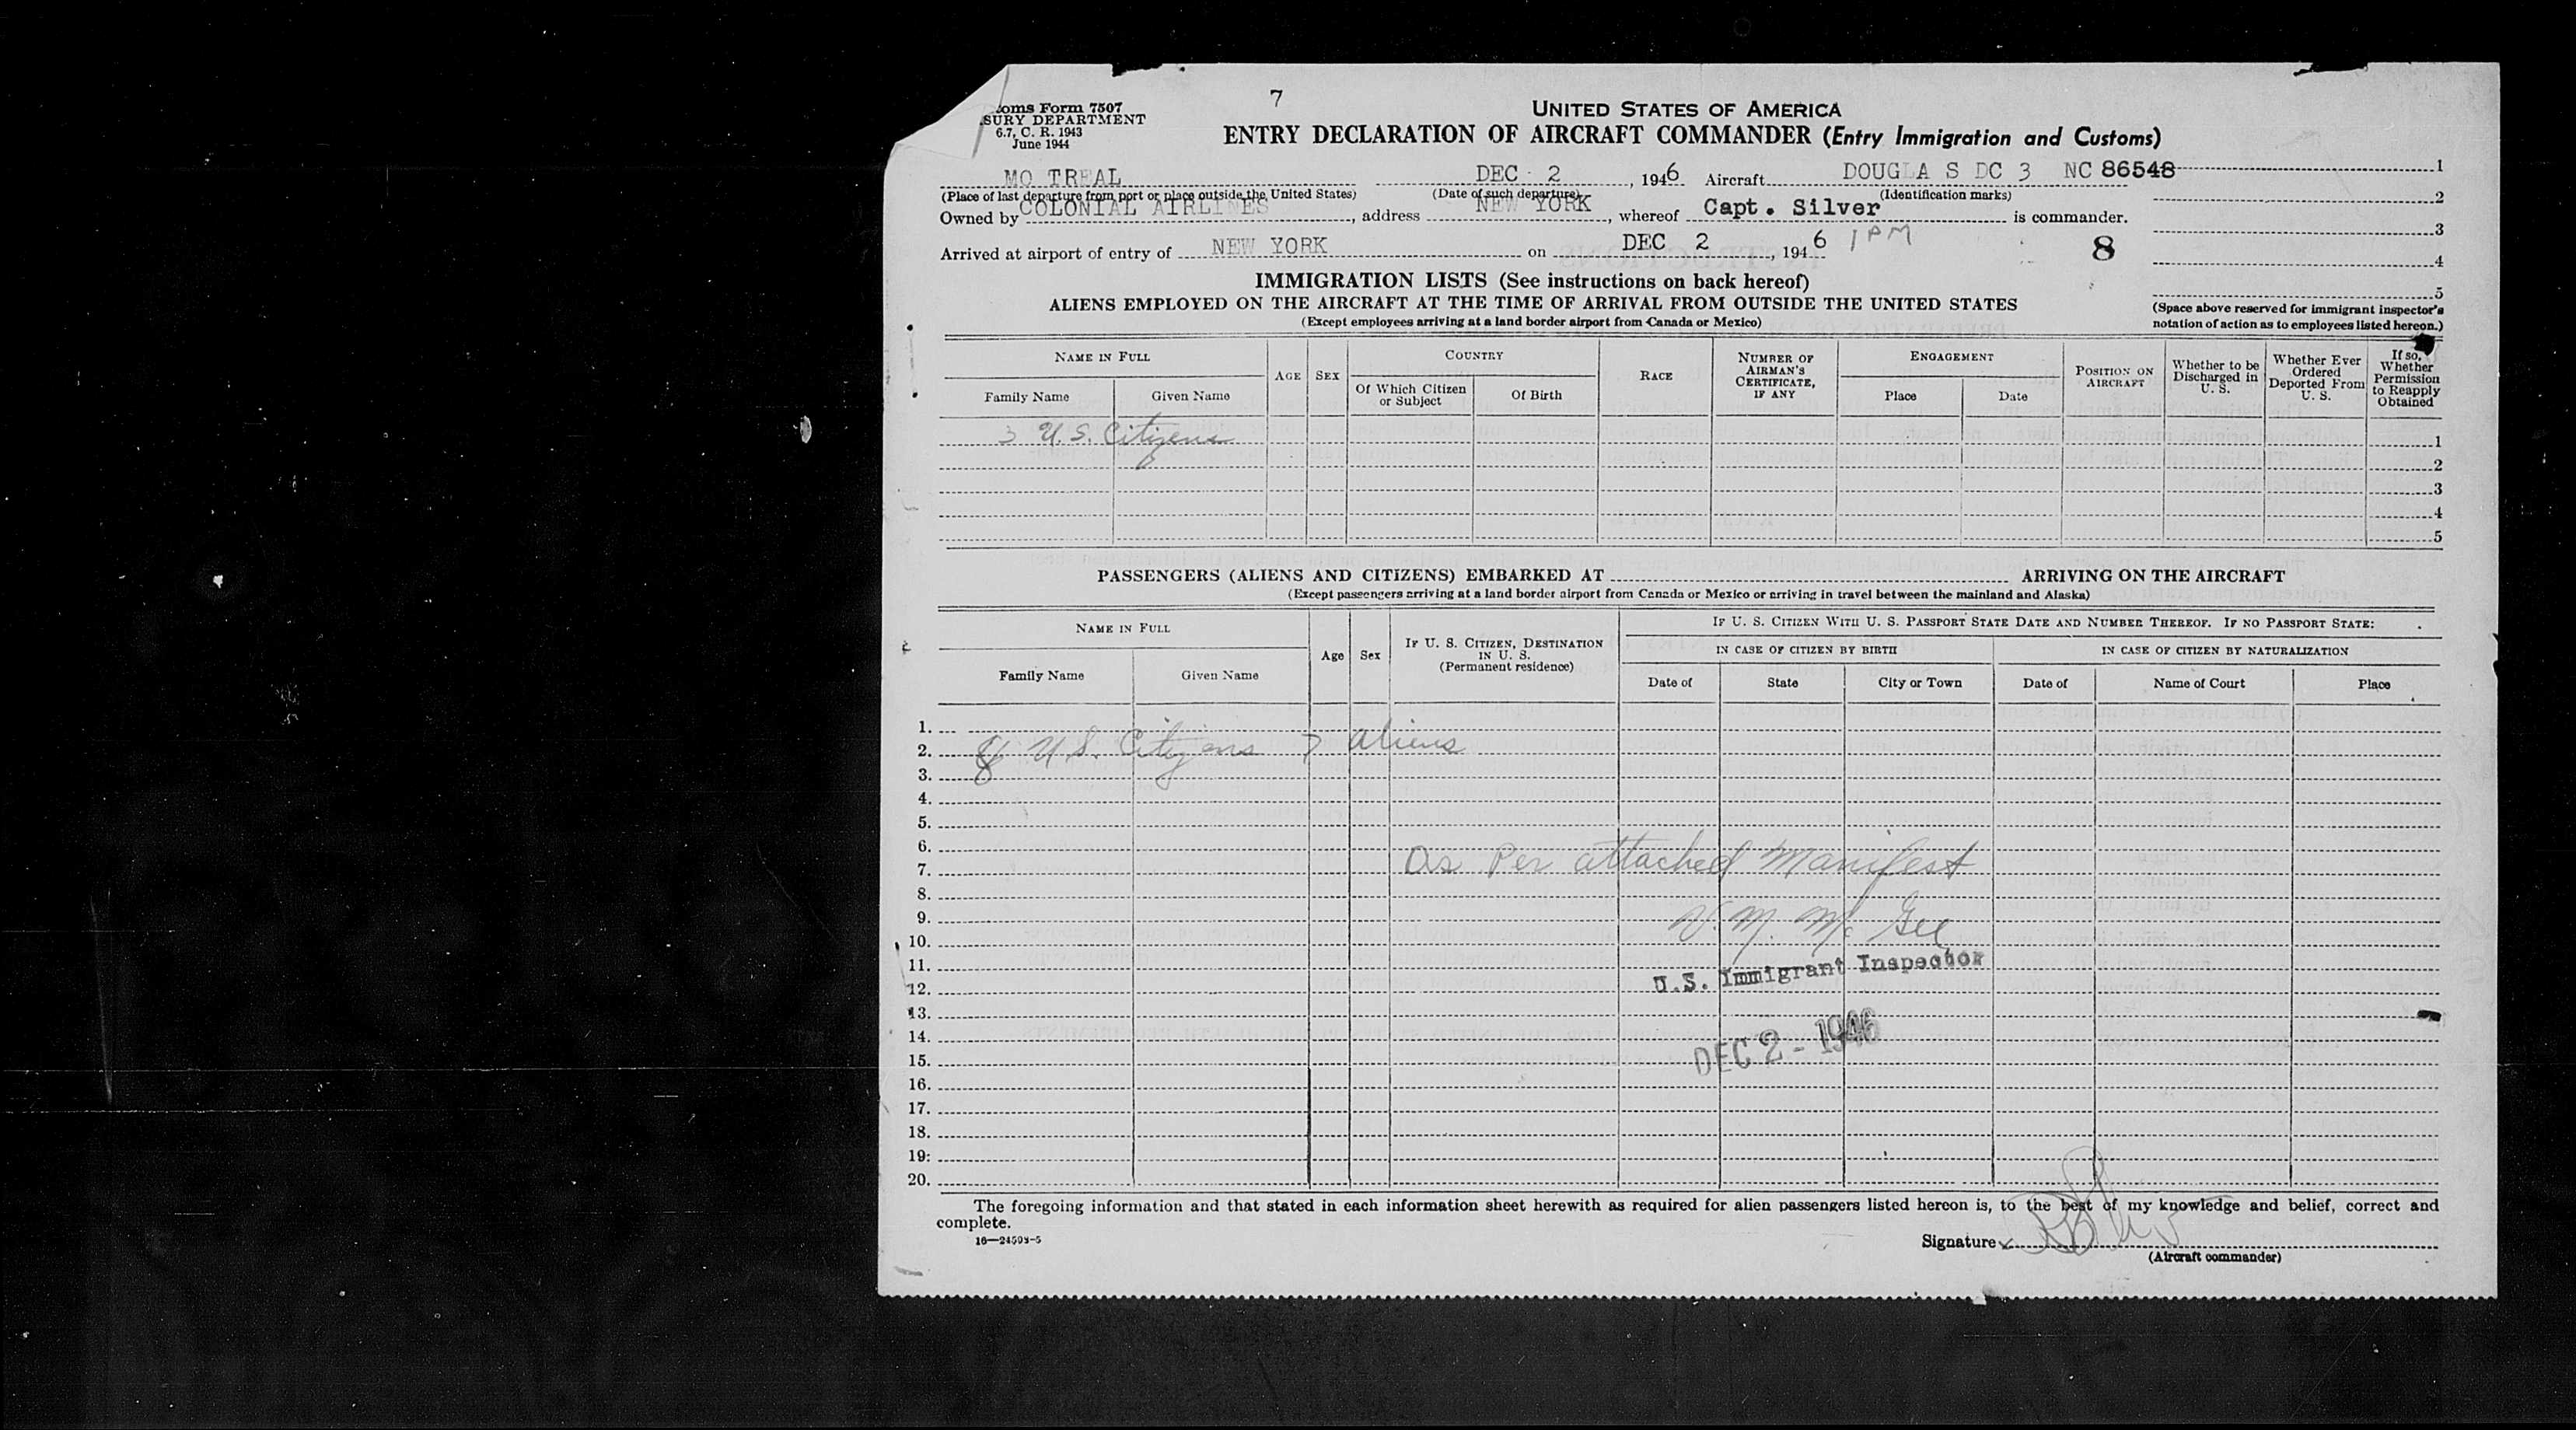 7
oms Form 7507
SURY DEPARTMENT
6.7, C. R. 1943
June 1944
UNITED STATES OF AMERICA
ENTRY DECLARATION OF AIRCRAFT COMMANDER (Entry Immigration and Customs)
MO TREAL DEC 2, 1946 Aircraft DOUGLA S DC 3 NC 86548
(Place of last departure from port or place outside the United States) (Date of such departure) (Identification marks)
Owned by COLONIAL AIRLINES, address NEW YORK, whereof Capt. Silver is commander.
Arrived at airport of entry of NEW YORK on DEC 2, 1946 1 PM 8
1
2
3
4
5
(Space above reserved for immigrant inspector's notation of action as to employees listed hereon.)
IMMIGRATION LISTS (See instructions on back hereof)
ALIENS EMPLOYED ON THE AIRCRAFT AT THE TIME OF ARRIVAL FROM OUTSIDE THE UNITED STATES
(Except employees arriving at a land border airport from Canada or Mexico)
NAME IN FULL
Family Name Given Name
AGE SEX
COUNTRY
Of Which Citizen or Subject Of Birth
RACE
NUMBER OF AIRMAN'S CERTIFICATE, IF ANY
ENGAGEMENT
Place Date
POSITION ON AIRCRAFT
Whether to be Discharged in U. S.
Whether Ever Ordered Deported From U. S.
If so, Whether Permission to Reapply Obtained
3 U.S. Citizens 1
2
3
4
5
PASSENGERS (ALIENS AND CITIZENS) EMBARKED AT ARRIVING ON THE AIRCRAFT
(Except passengers arriving at a land border airport from Canada or Mexico or arriving in travel between the mainland and Alaska)
NAME IN FULL
Family Name Given Name
Age Sex
IF U. S. CITIZEN, DESTINATION IN U. S.
(Permanent residence)
IF U. S. CITIZEN WITH U. S. PASSPORT STATE DATE AND NUMBER THEREOF. IF NO PASSPORT STATE:
IN CASE OF CITIZEN BY BIRTH IN CASE OF CITIZEN BY NATURALIZATION
Date of State City or Town Date of Name of Court Place
1.
2. 8 U.S. Citizens 7 aliens
3.
4.
5.
6.
7. As Per attached Manifest
8.
9. V. M. Mc Gee
10.
11. U.S. Immigrant Inspector
12.
13.
14. DEC 2 - 1946
15.
16.
17.
18.
19.
20.
The foregoing information and that stated in each information sheet herewith as required for alien passengers listed hereon is, to the best of my knowledge and belief, correct and
complete.
Signature
(Aircraft commander)